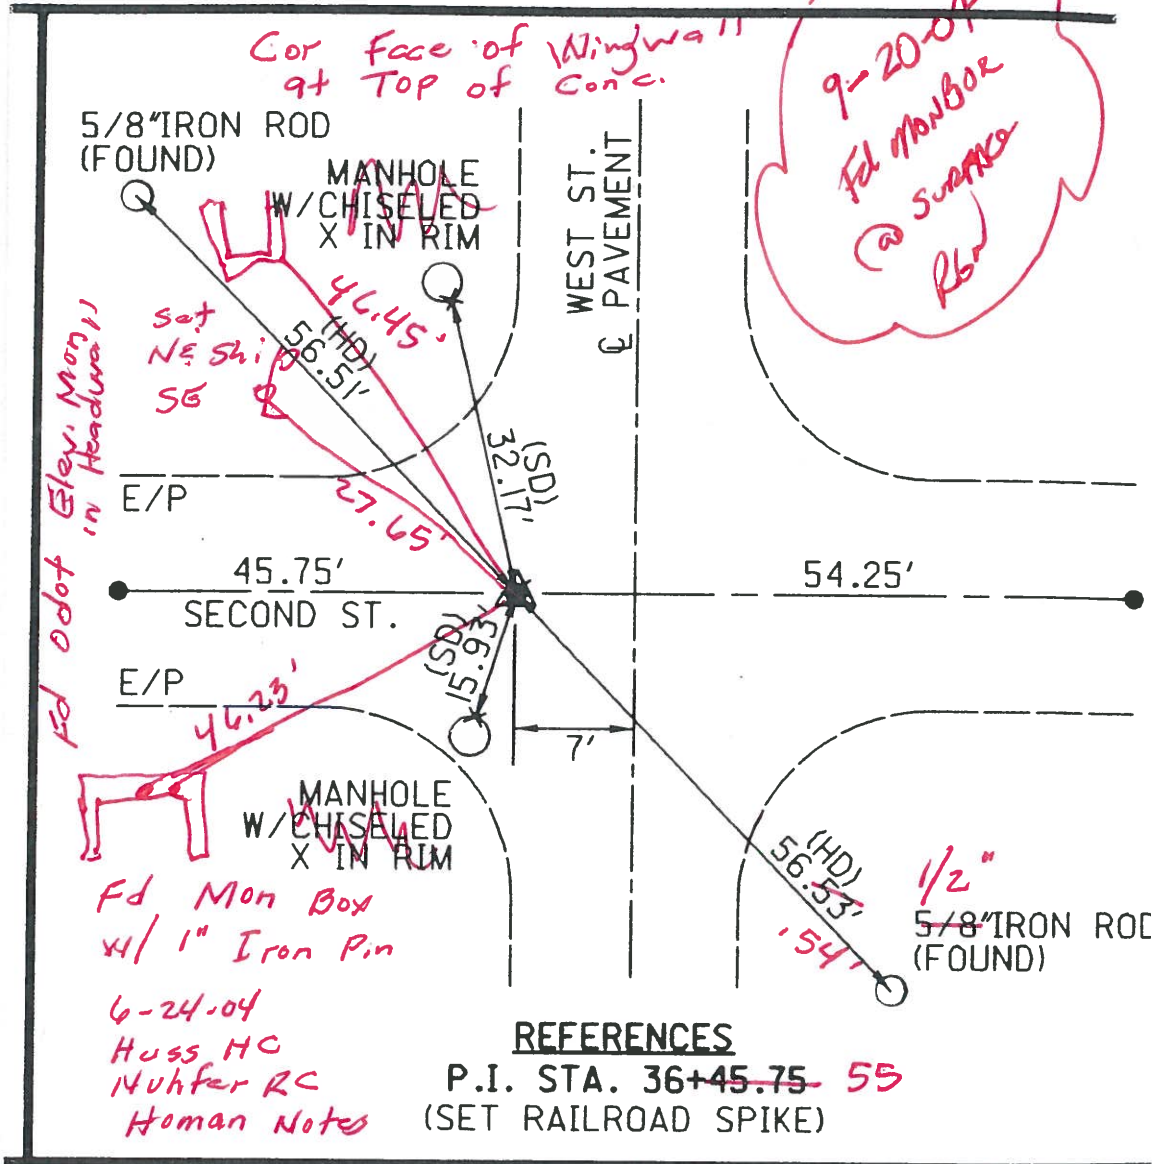 Cor Face of Wingwall
at Top of Conc.
9-20-04
Fd MONBOX
@ SURFACE
Rbm
5/8"IRON ROD
(FOUND)
MANHOLE
W/CHISELED
X IN RIM
WEST ST.
℄ PAVEMENT
46.45'
(HD)
56.51'
Set
NE Ship
SE
(SD)
32.17'
Fd Odot Elev. Mon
in Headwall
E/P
27.65'
45.75'
SECOND ST.
54.25'
(SD)
15.93'
E/P
46.23'
7'
MANHOLE
W/CHISELED
X IN RIM
(HD)
56.53'
.54'
1/2"
5/8"IRON ROD
(FOUND)
Fd Mon Box
w/ 1" Iron Pin
6-24-04
Huss HC
Nuhfer RC
Homan Notes
REFERENCES
P.I. STA. 36+45.75 55
(SET RAILROAD SPIKE)